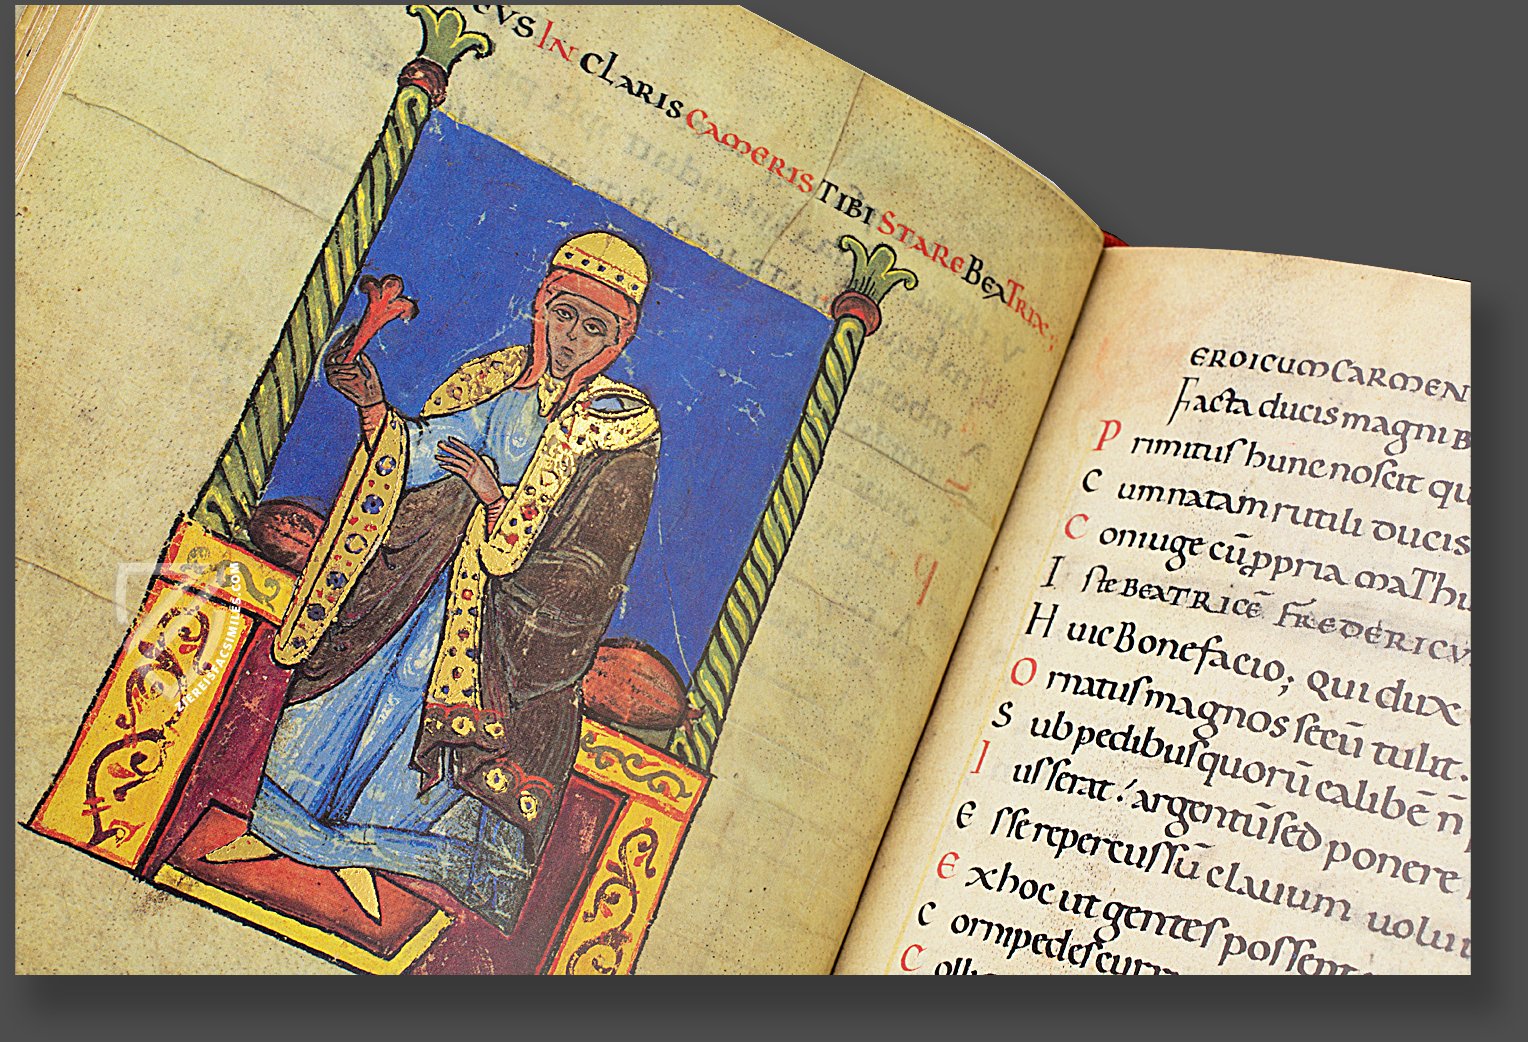 CVS IN CLARIS CAMERIS TIBI STARE BEATRIX
ZIEREISFACSIMILES.COM
EROICUM CARMEN
Facta ducis magni B
Primituſ hunc noſcit qu
Cum natam rutili ducis
Coniuge cū ppria maThi
Iſte BEATRICĒ FREDERICV
Huic Bonefacio; Qui dux
Ornatuſ magnos ſecū tulit.
Sub pedibuſ quorū calibē n̄
Iuſſerat argentū ſed ponere
Eſſe repercuſſū clauum uolu
Ex hoc ut genteſ poſſent
Cornipedeſ curr